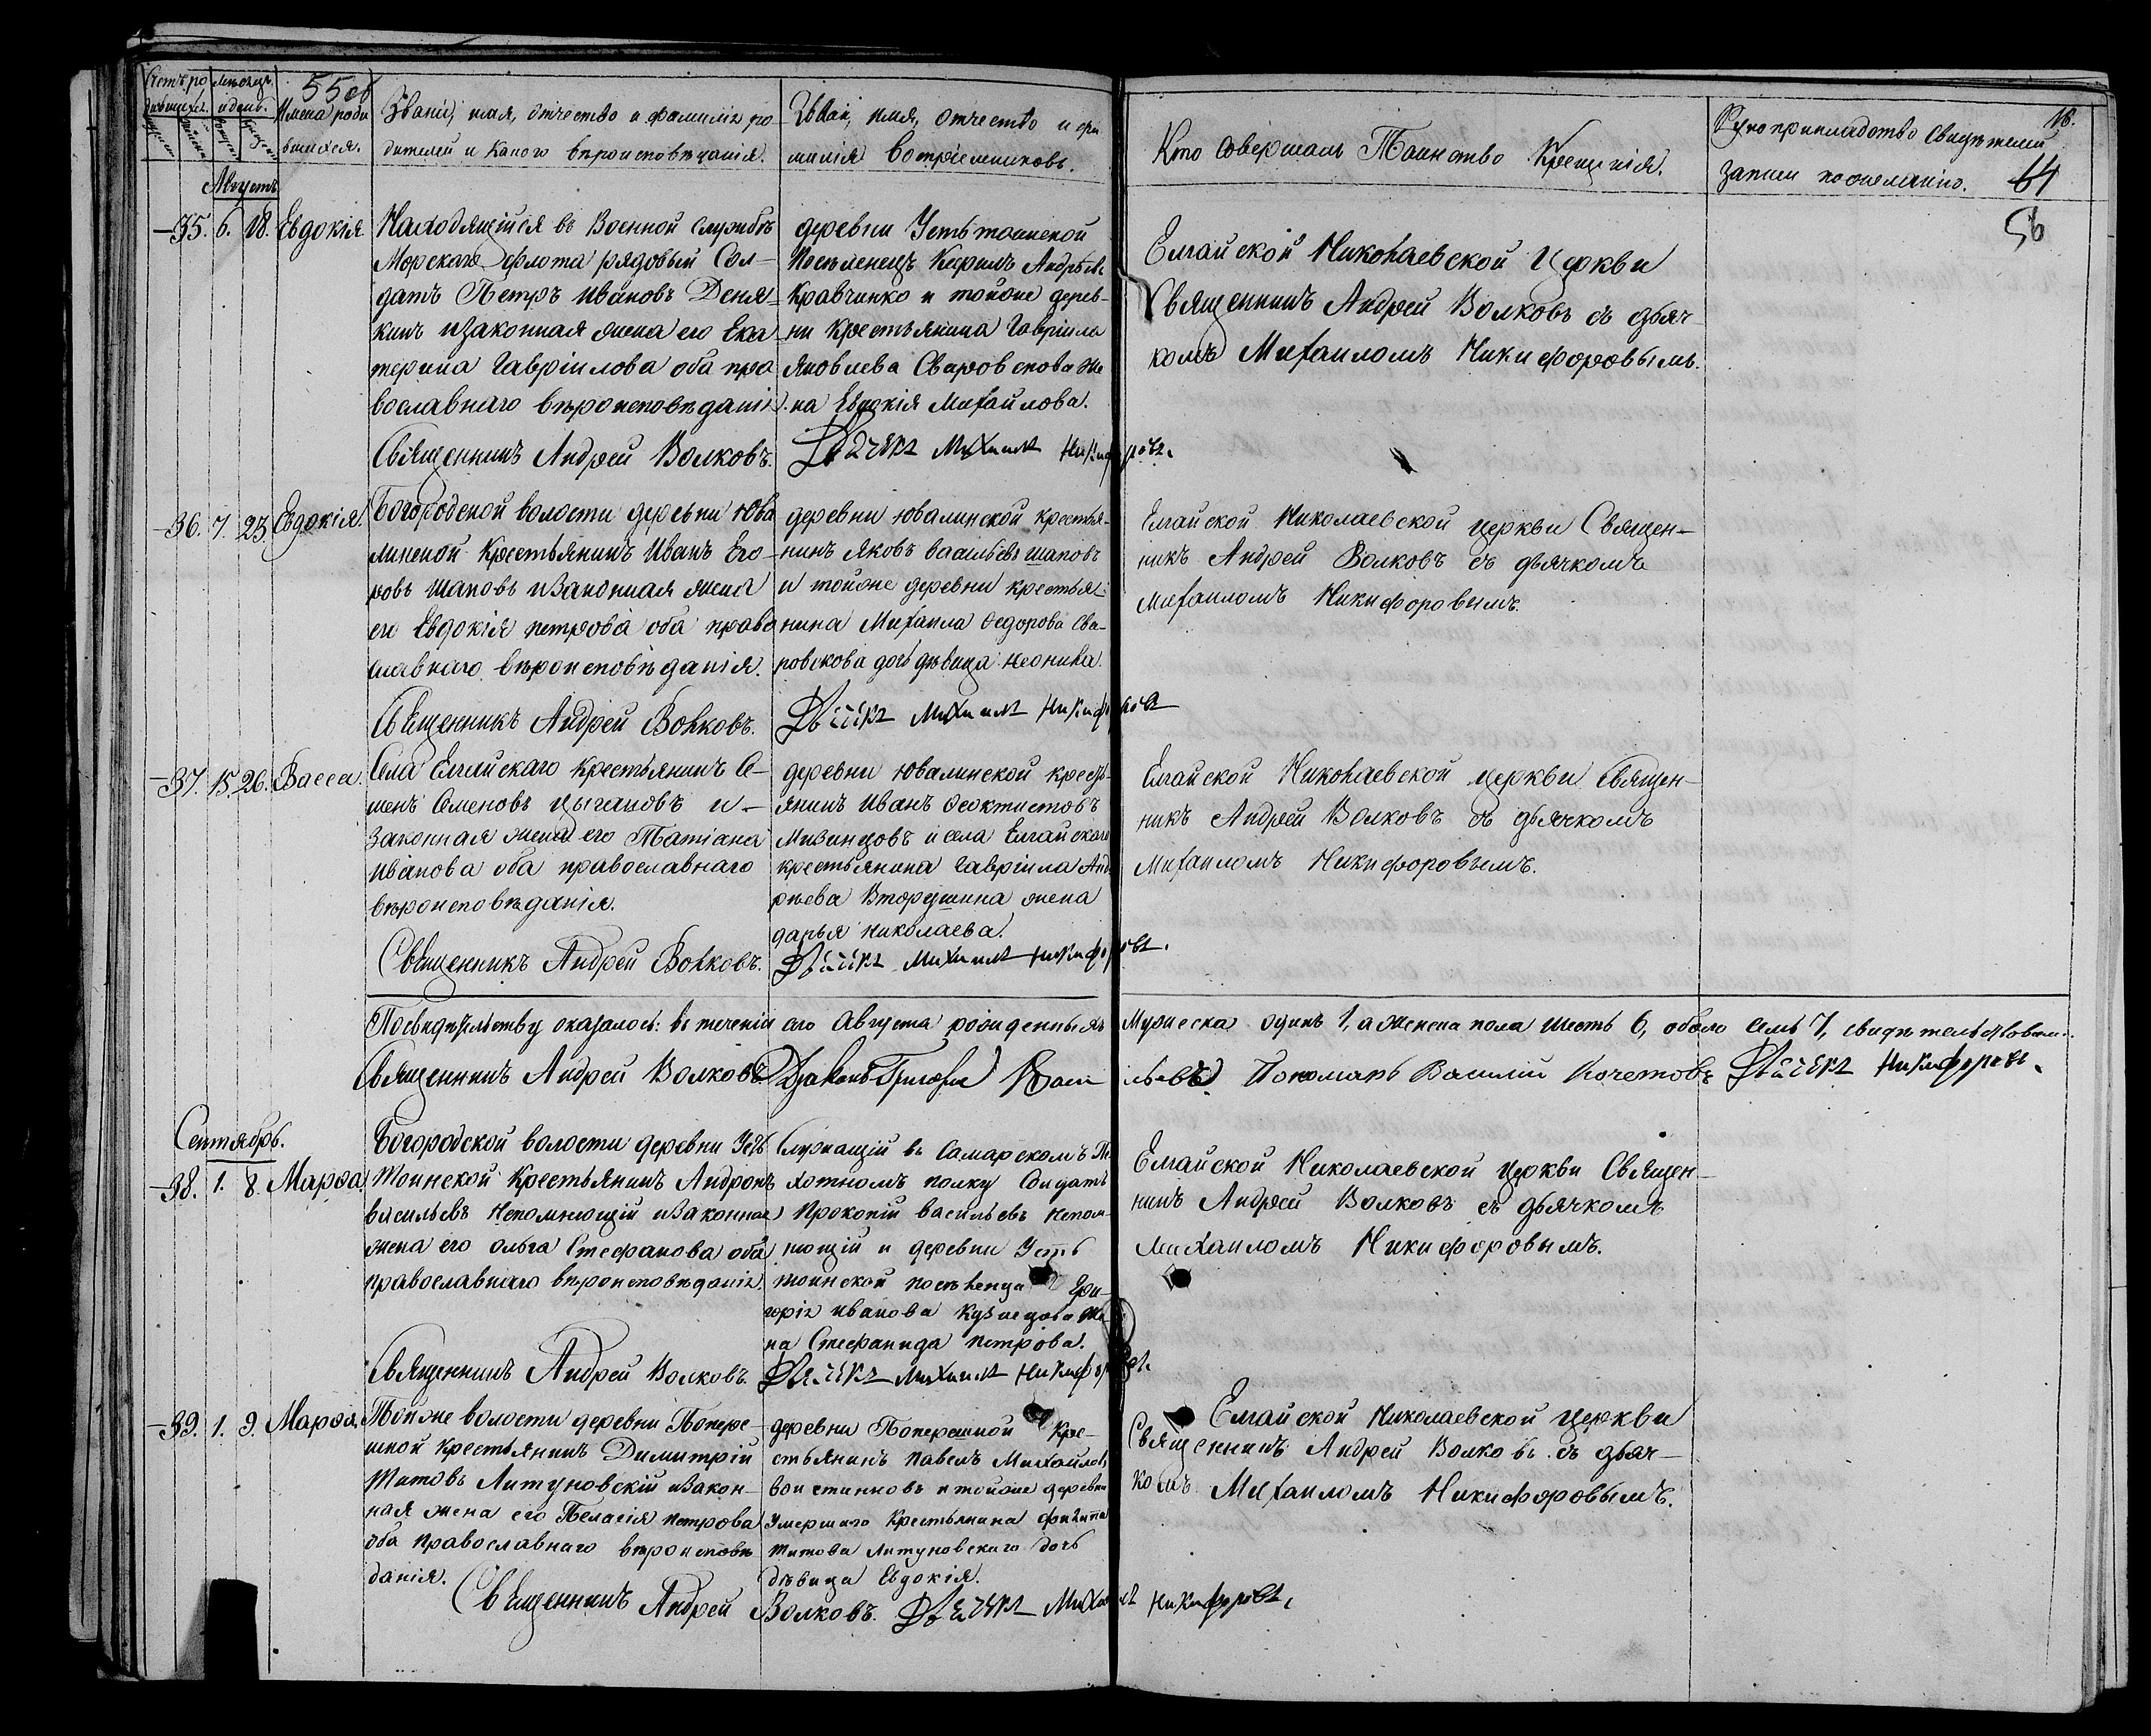 55об
Счетъ ро
дившихся.
Мѣсяцъ
и день.
Имена роди
вшихся.
Званіе, имя, отчество и фамилія ро
дителей и какого вѣроисповѣданія.
Званіе, имя, отчество и фа
милія восприемниковъ.
Кто совершалъ Таинство Крещенія.
Рукоприкладство свидѣтелей
записи по желанію.
16.
64
56
Августъ
35. 6. 18. Евдокія
Находящійся въ Военной службѣ
Морскаго флота рядовый Сол-
датъ Петръ Ивановъ Деня-
кинъ изаконная жена его Ека
терина Гавріилова оба пра
вославнаго вѣроисповѣданія.
Священникъ Андрей Волковъ.
деревни Устьтоинской
Поселенецъ Андрѣевъ
Кравчинко и тойже дерев-
ни крестьянина Гавріила
Яковлева Сваровскова же
на Евдокія Михайлова.
Дьячекъ Михаилъ Никифоровъ.
Елгайской Николаевской Церкви
Священникъ Андрей Волковъ съ дьяч
комъ Михаиломъ Никифоровымъ.
36. 7. 23. Евдокія.
Богородской волости деревни Юва
линской Крестьянинъ Иванъ Его-
ровъ Шаповъ изаконная жена
его Евдокія петрова оба право
славнаго вѣроисповѣданія.
Священникъ Андрей Волковъ.
деревни Ювалинской крестья-
нинъ Яковъ Васильевъ Шаповъ
и тойже деревни крестья-
нина Михаила Ѳедорова Сва-
ровскова дочь дѣвица Неонила.
Дьячекъ Михаилъ Никифоровъ
Елгайской Николаевской церкви Священ-
никъ Андрей Волковъ съ дьячкомъ
Михаиломъ Никифоровымъ.
37. 15. 26. Васса.
Села Елгайскаго крестьянинъ Се-
менъ Семеновъ Цыгановъ и-
законная жена его Татіана
Иванова оба православнаго
вѣроисповѣданія.
Священникъ Андрей Волковъ.
деревни Ювалинской кресть-
янинъ Иванъ Ѳеоктистовъ
Мизинцовъ и села Елгайскаго
крестьянина Гавріила Анд
рѣева Вторушина жена
дарья Николаева.
Дьячекъ Михаилъ Никифоровъ.
Елгайской Николаевской церкви Священ-
никъ Андрей Волковъ съ дьячкомъ
Михаиломъ Никифоровымъ.
Посвидѣтельству оказалось: въ теченіи сего Августа рожденныхъ Мужеска одинъ 1, а женска пола шесть 6, обоего семь 7, свидѣтельствовали.
Священникъ Андрей Волковъ Діаконъ Григорій Васильевъ. Пономарь Василій Кочетовъ Дьячекъ Никифоровъ.
Сентябрь.
38. 1. 8. Марѳа.
Богородской волости деревни Усть
Тоинской Крестьянинъ Андронъ
васильевъ Непомнющій изаконная
жена его Ольга Стефанова оба
православнаго вѣроисповѣданія.
Священникъ Андрей Волковъ.
Служащій въ Самарскомъ Пѣ
хотномъ полку Солдатъ
Прокопій васильевъ Непом-
нющій и деревни Усть
тоинской поселенца Гри-
горія Иванова Кузнецова же
на Стефанида петрова.
Дьячекъ Михаилъ Никифоровъ.
Елгайской Николаевской Церкви Священ-
никъ Андрей Волковъ съ дьячкомъ
Михаиломъ Никифоровымъ.
39. 1. 9. Марѳа.
Тойже волости деревни Попере-
шной крестьянинъ Димитрій
Титовъ Литуновскій изакон-
ная жена его Пелагія петрова
оба православнаго вѣроисповѣ
данія.
деревни Поперешной Кре-
стьянинъ Павелъ Михайловъ
воистиновъ и тойже деревни
умершаго крестьянина Филипа
Титова Литуновскаго дочь
дѣвица Евдокія.
Священникъ Андрей Волковъ. Дьячекъ Михаилъ Никифоровъ.
Елгайской Николаевской Церкви
Священникъ Андрей Волковъ съ дьяч-
комъ Михаиломъ Никифоровымъ.